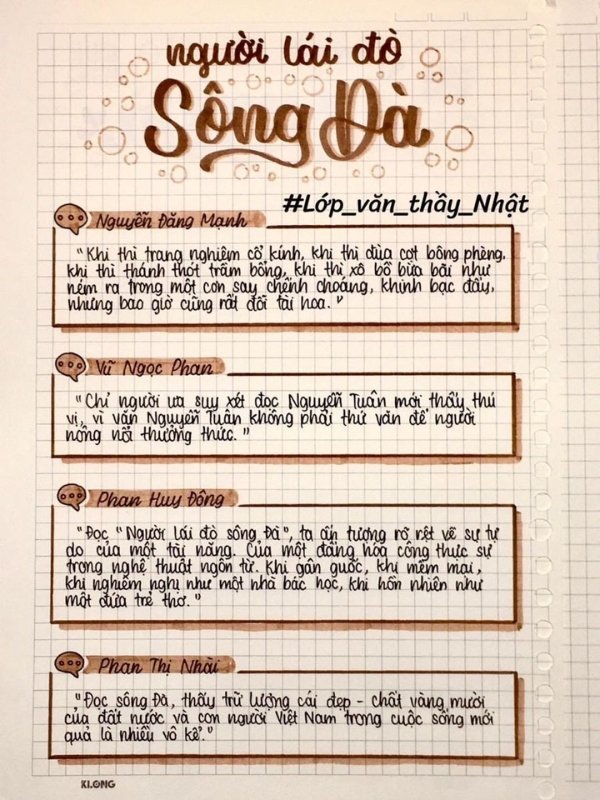 người lái đò
Sông Đà
#Lớp_văn_thầy_Nhật
Nguyễn Đăng Mạnh
"Khi thì trang nghiêm cổ kính, khi thì đùa cợt bông phèng,
khi thì thánh thót trầm bổng, khi thì xô bồ bừa bãi như
ném ra trong một cơn say chếnh choáng, khinh bạc đầy,
nhưng bao giờ cũng rất đỗi tài hoa."
Vũ Ngọc Phan
"Chỉ người ưa suy xét đọc Nguyễn Tuân mới thấy thú
vị, vì văn Nguyễn Tuân không phải thứ văn để người
nông nổi thưởng thức."
Phan Huy Đông
"Đọc "Người lái đò sông Đà", ta ấn tượng rõ rệt về sự tự
do của một tài năng. Của một đấng hóa công thực sự
trong nghệ thuật ngôn từ. Khi gân guốc, khi mềm mại,
khi nghiêm nghị như một nhà bác học, khi hồn nhiên như
một đứa trẻ thơ."
Phan Thị Nhài
"Đọc sông Đà, thấy trữ lượng cái đẹp - chất vàng mười
của đất nước và con người Việt Nam trong cuộc sống mới
quả là nhiều vô kể."
KLONG